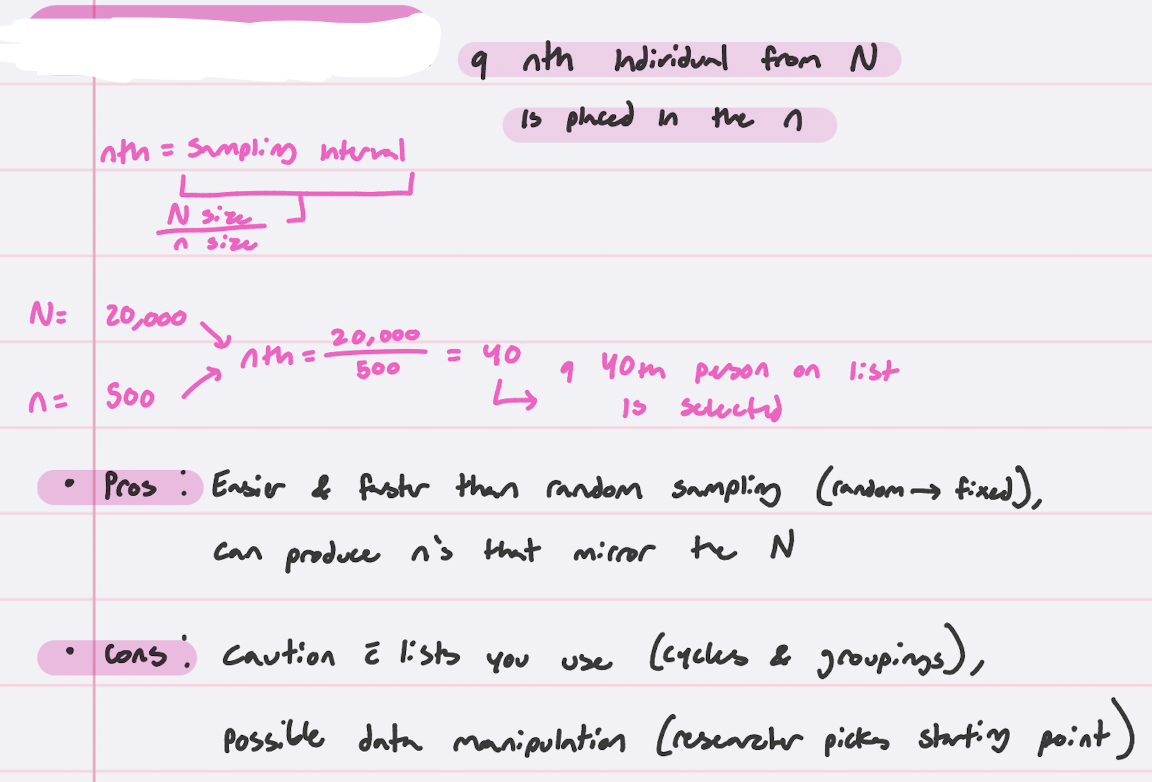 q nth individual from N
is placed in the n
nth = sampling interval
N size
n size
N = 20,000
nth = 20,000 / 500 = 40
n = 500
q 40th person on list
is selected
• Pros : Easier & faster than random sampling (random → fixed),
can produce n's that mirror the N
• Cons : Caution c̄ lists you use (cycles & groupings),
possible data manipulation (researcher picks starting point)